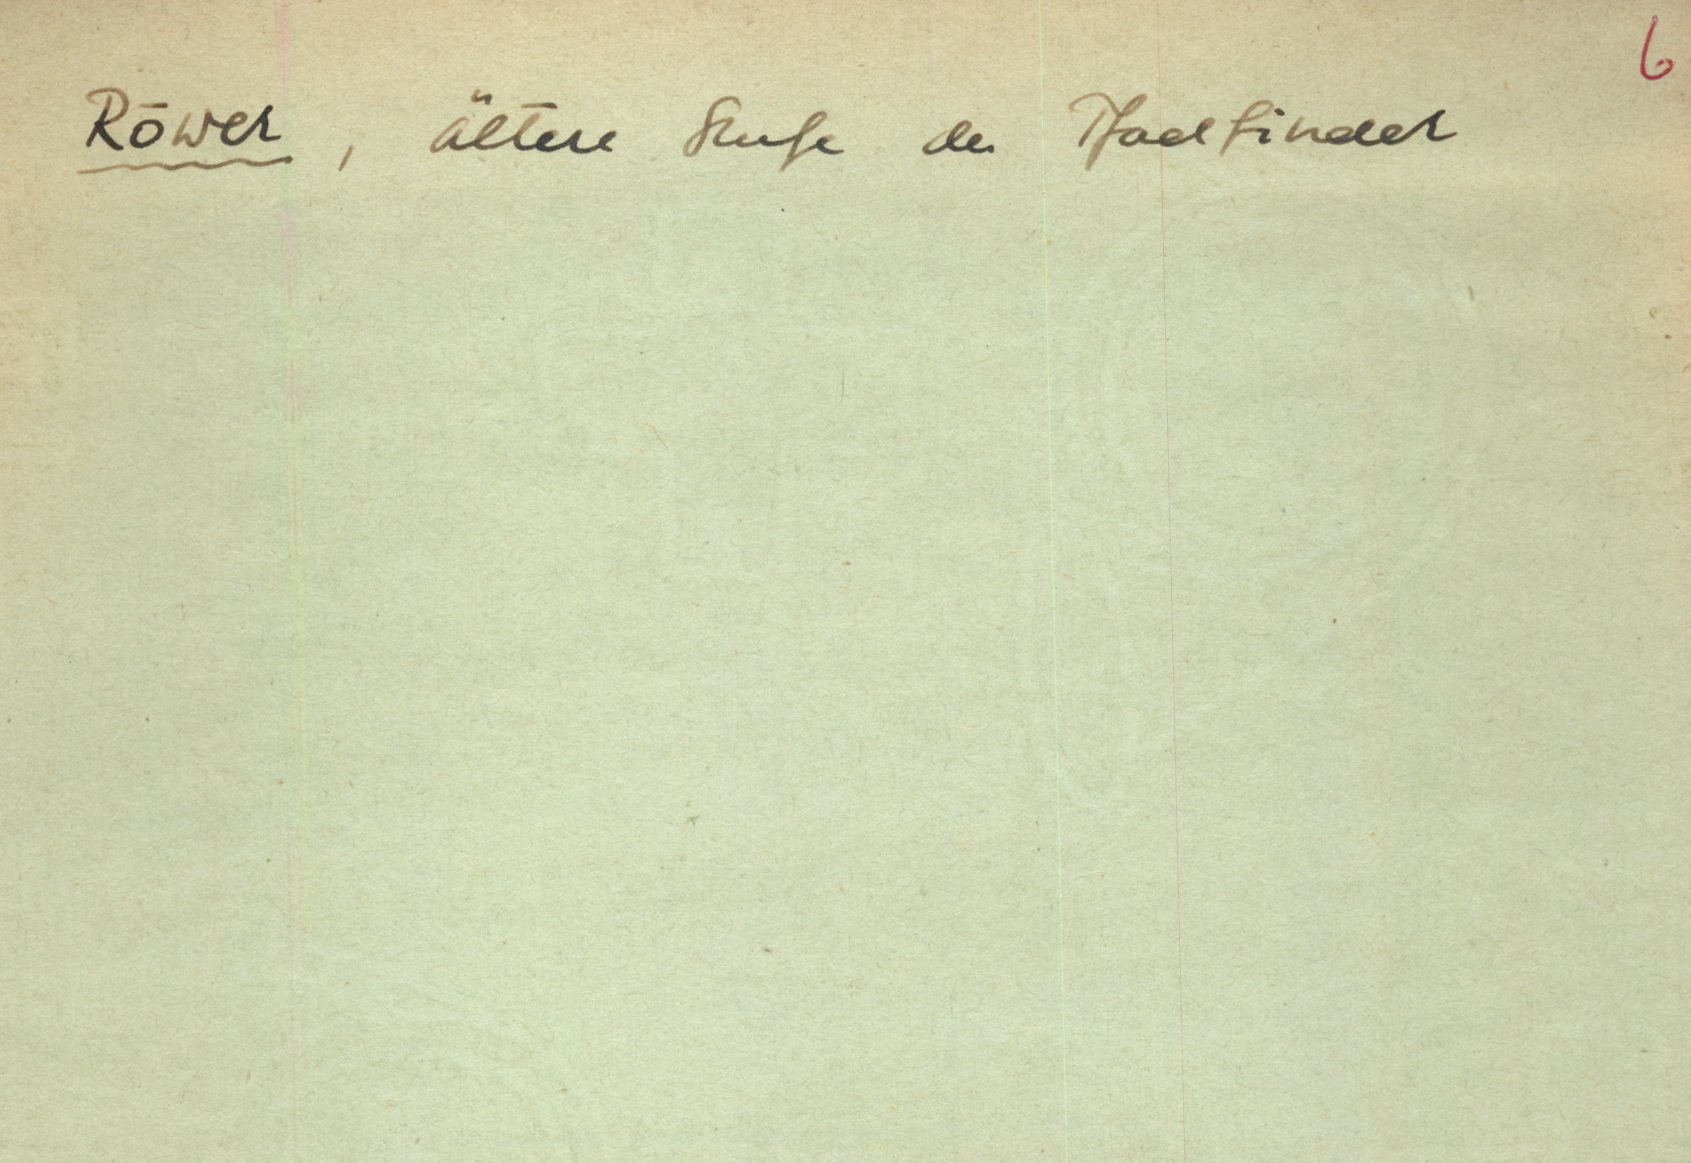 6
Rōwer, ältere Stufe der Pfadfinder